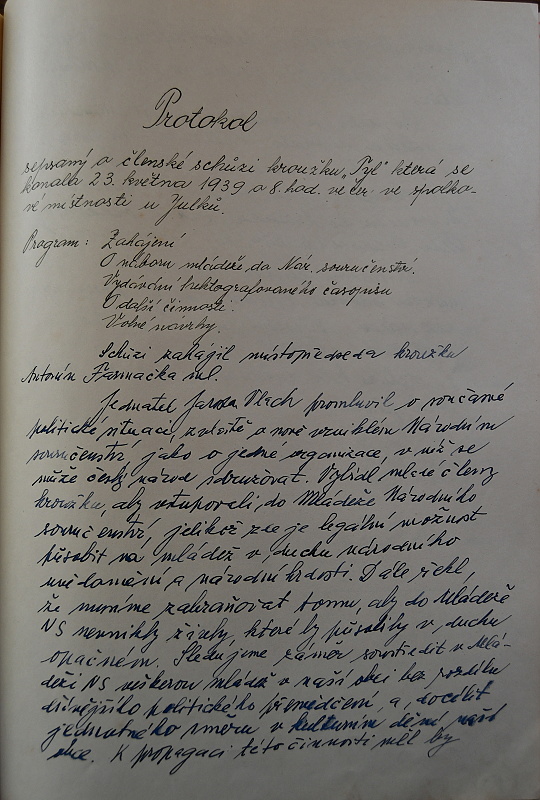 Protokol
sepsaný o členské schůzi kroužku „Tyl" která se
konala 23. května 1939 o 8. hod. več er. ve spolko-
vé místnosti u Julků.
Program: Zahájení
O náboru mládeže do Nár. souručenství.
Vydávání hektografovaného časopisu
O další činnosti.
Volné návrhy.
Schůzi zahájil místopředseda kroužku
Antonín Farmačka ml.
Jednatel Jarosl. Vlach promluvil o současné
politické situaci, zvláště o nově vzniklém Národním
souručenství, jako o jedné organizace, v níž se
může český národ sdružovat. Vybídl mladé členy
kroužku, aby vstupovali do Mládeže Národního
souručenství, jelikož zde je legální možnost
působit na mládež v duchu národního
uvědomění a národní hrdosti. Dále řekl,
že musíme zabraňovat tomu, aby do Mládeže
NS nevnikly živly, které by působily v duchu
opačném. Sledujeme záměr soustředit v Mlá-
deži NS veškerou mládež v naší obci bez rozdílu
dřívějšího politického přesvědčení, a docílit
jednotného směru v kulturním dění naší
obce. K propagaci této činnosti měl by